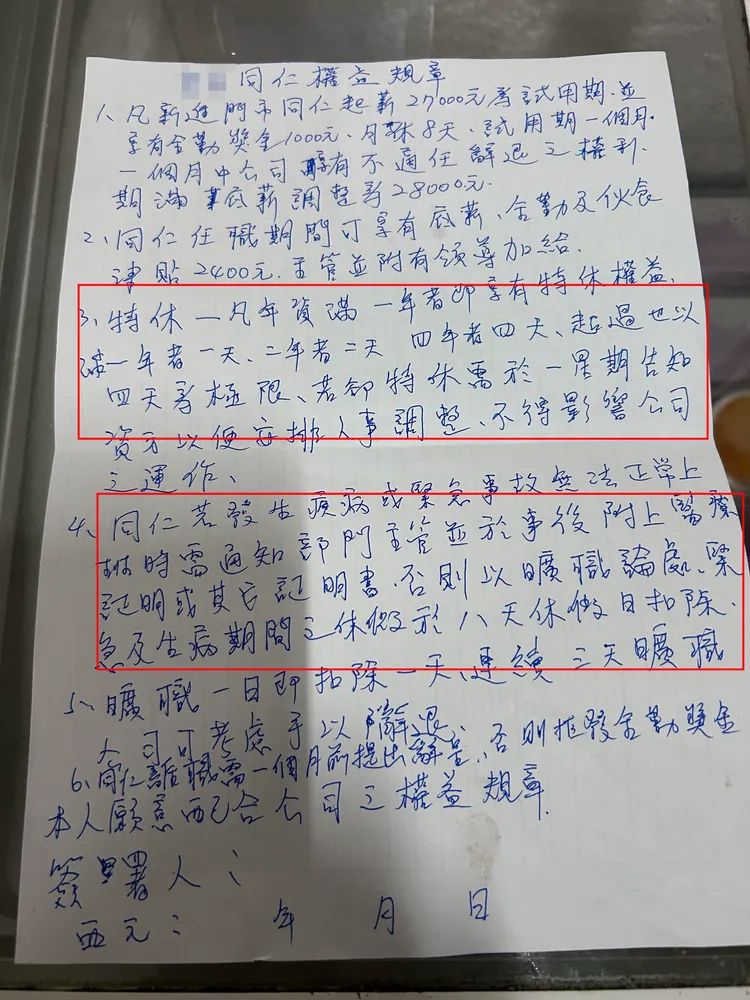 同仁權益規章
1、凡新進門市同仁起薪27000元為試用期.並
享有全勤獎金1000元、月休8天、試用期一個月.
一個月中公司享有不適任辭退之權利.
期滿底薪調整為28000元.
2、同仁任職期間可享有底薪、全勤及伙食
津貼2400元.主管並附有領導加給.
3、特休—凡年資滿一年者即享有特休權益、
一年者一天、二年者二天 四年者四天、超過也以
四天為極限、若卻特休需於一星期告知
資方以便安排人事調整、不得影響公司
之運作、
4、同仁若發生疾病或緊急事故無法正常上
班時需通知部門主管並於事後附上醫療
証明或其它証明書.否則以曠職論處、緊
急及生病期間之休假於八天休假日扣除.
5、曠職一日即扣除一天、連續三天曠職
公司可考慮予以辭退.
6、同仁離職需一個月前提出辭呈、否則拒發全勤獎金
本人願意配合公司之權益規章.
簽署人:
西元: 年 月 日